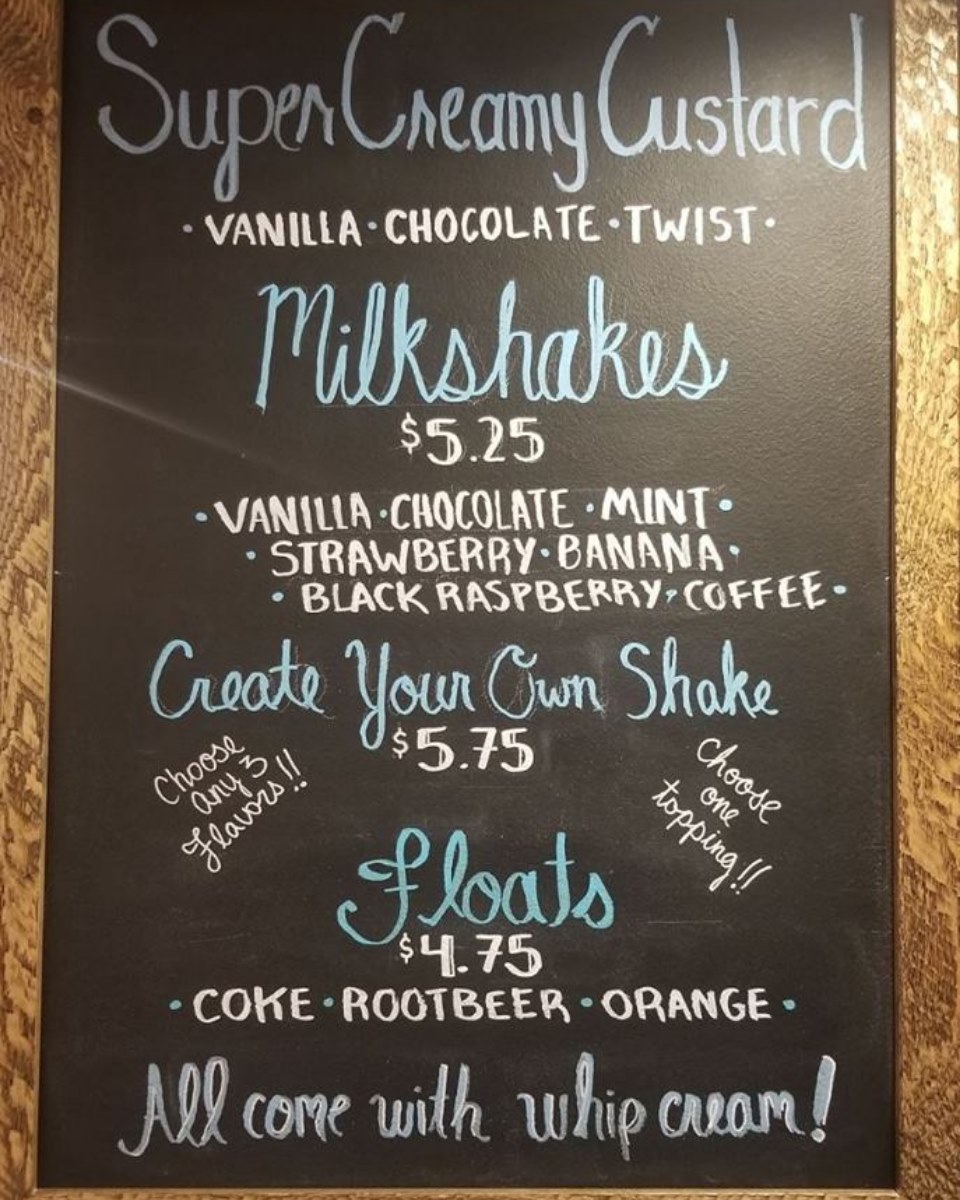 Super Creamy Custard
• VANILLA • CHOCOLATE • TWIST •
Milkshakes
$5.25
• VANILLA • CHOCOLATE • MINT •
• STRAWBERRY • BANANA •
• BLACK RASPBERRY • COFFEE •
Create Your Own Shake
$5.75
Choose
any 3
Flavors!!
Choose
one
topping!!
Floats
$4.75
• COKE • ROOTBEER • ORANGE •
All come with whip cream!